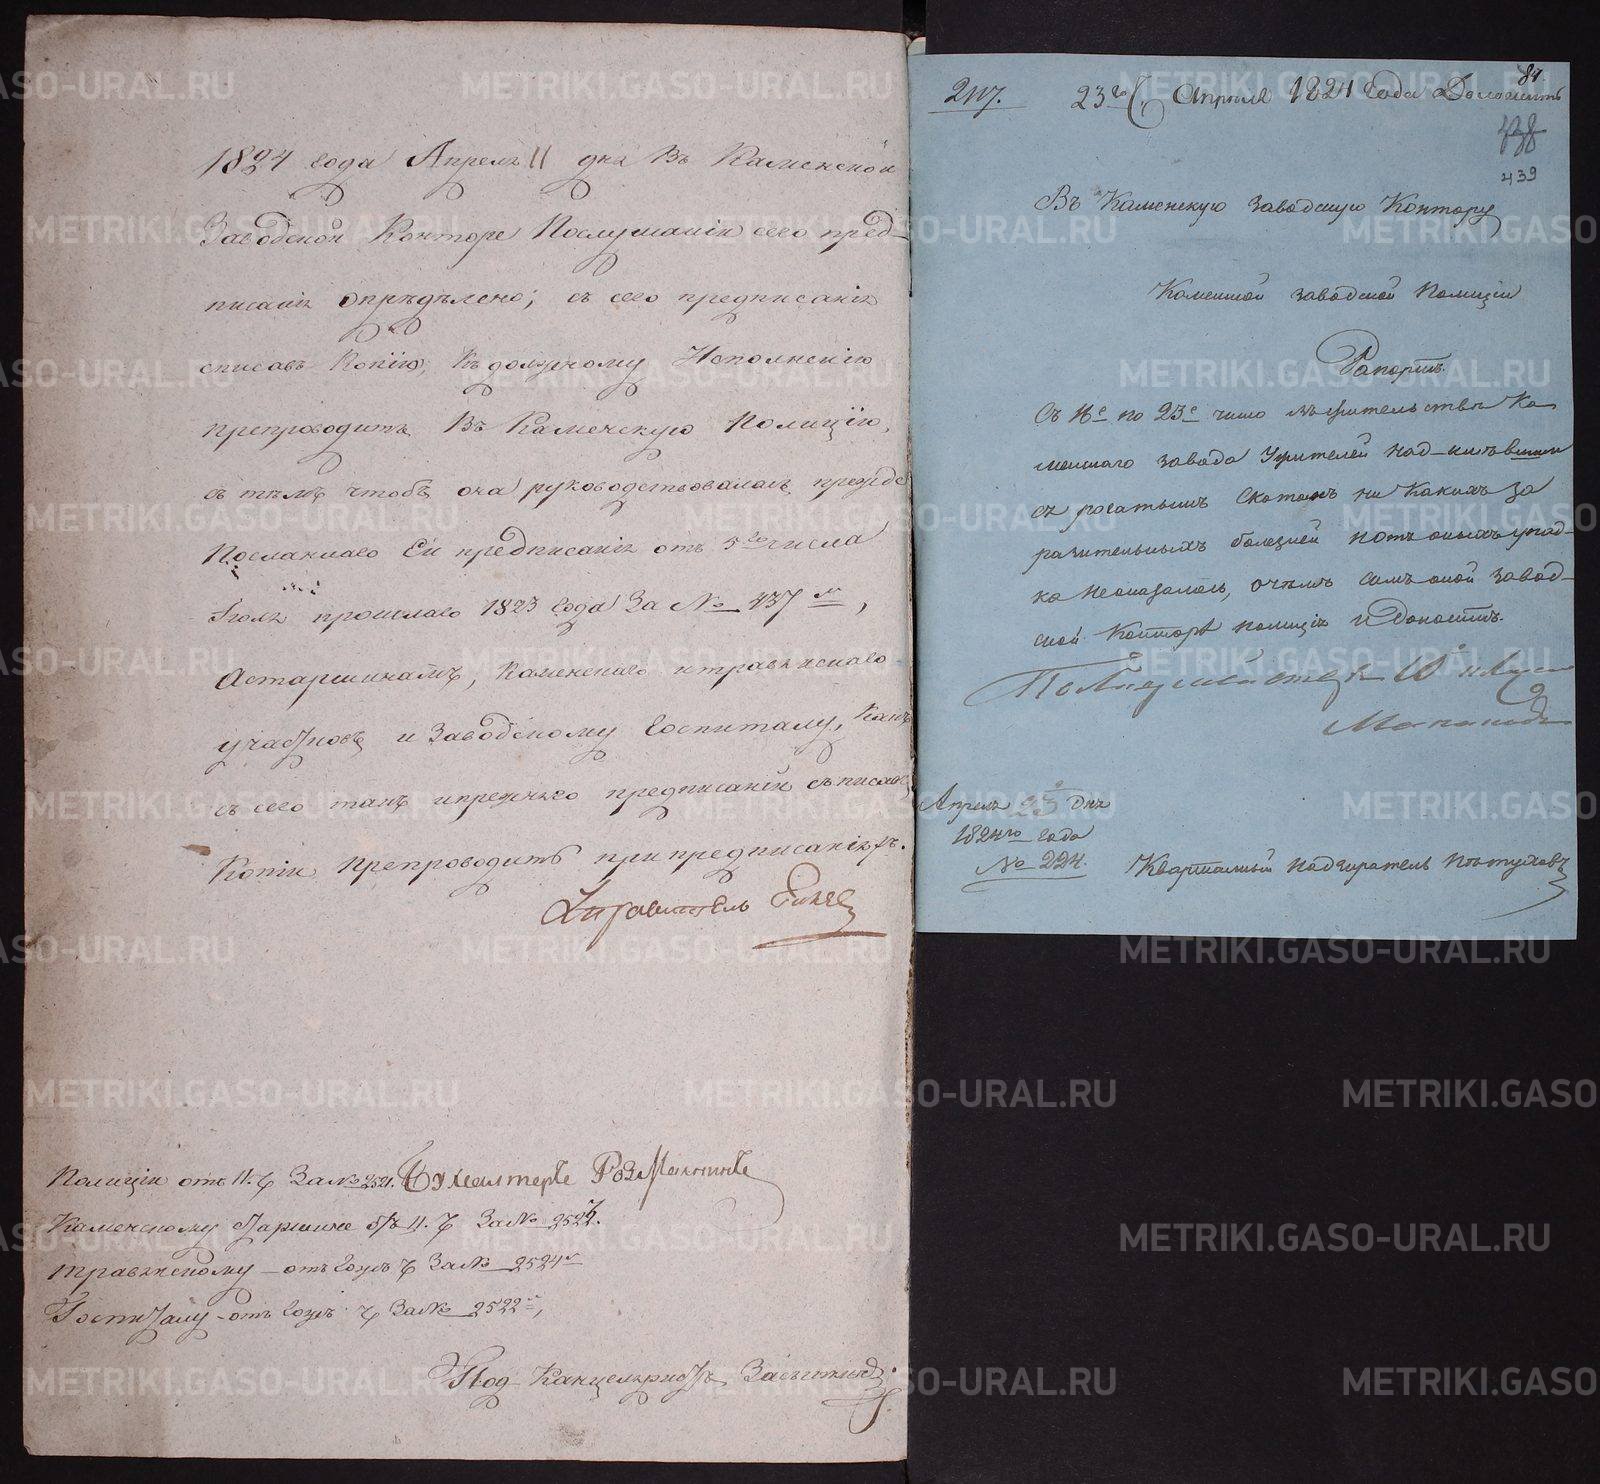 1824 года Апреля 11 дня въ Каменской
Заводской Конторе Послушании сего пред-
писания опредѣлено; съ сего предписания
списавъ Копию, къ должному Исполнению
препроводить въ Каменскую полицию,
съ тѣмъ чтобъ она руководствовалась, прежде
Посланнаго Ей предписания отъ 5го числа
Июля прошлаго 1823 года За № 437м,
Астаршинамъ, Каменскаго итравянскаго
участковъ и Заводскому Госпиталу, Какъ
съ сего такъ ипрежняго предписаний съписавъ
Копии Препроводить припредписанияхъ.
Управитель
Полиции отъ 11. Ч За№ 2521. Бухгалтеръ
Каменскому старшине отъ 11. Ч За№ 2523.
травянскому - отъ того ч За№ 2524м
Госпиталу - отъ того ч За№ 2522м,
Под Канцеляристъ
217. 23го Апреля 1824 года Доложить
87
438
439
Въ Каменскую заводскую Контору
Каменской заводской Полиции
Рапортъ
Съ 16е по 23е число жъжительства Ка
менскаго завода Ужителей над-имѣвшим
съ рогатымъ Скотомъ ни Какихъ за
разительныхъ болезней иотъ оныхъ упад-
ка Неоказалось, очемъ симъ оной завод-
ской Конторѣ полиция и Доноситъ.
Полицмейстеръ
Апреля 23 Дня
1824го года
№ 224. Квартальный надзиратель Пѣтуховъ
METRIKI.GASO-URAL.RU